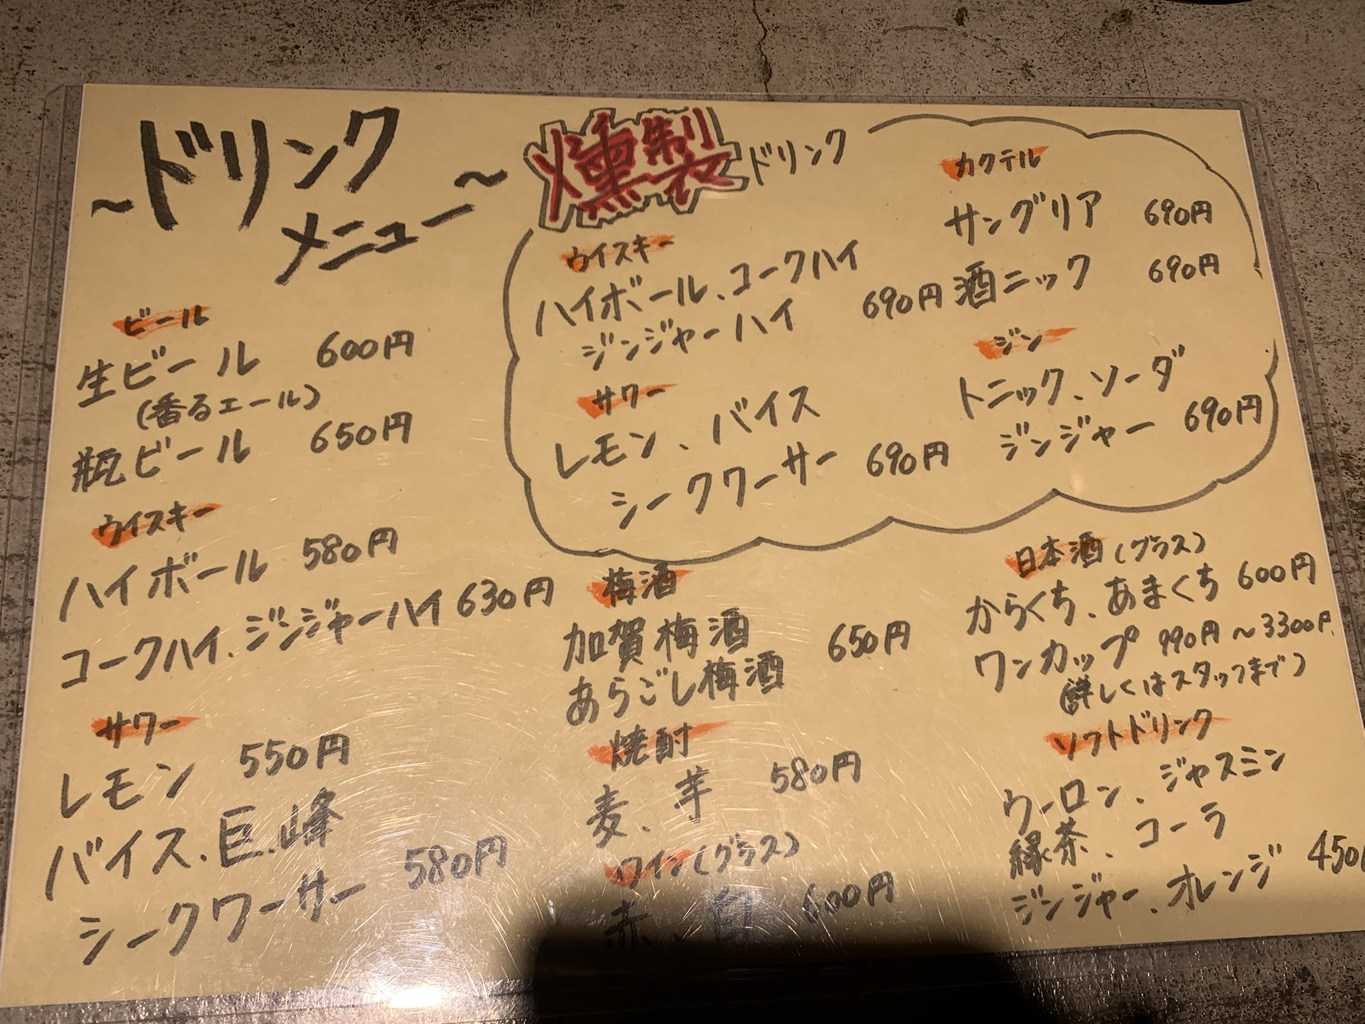 ~ドリンク
メニュー~
ビール
生ビール 600円
(香るエール)
瓶ビール 650円
ウイスキー
ハイボール 580円
コークハイ、ジンジャーハイ 630円
サワー
レモン 550円
バイス、巨峰
シークワーサー 580円
燻製ドリンク
ウイスキー
ハイボール、コークハイ
ジンジャーハイ 690円
サワー
レモン、バイス
シークワーサー 690円
カクテル
サングリア 690円
酒ニック 690円
ジン
トニック、ソーダ
ジンジャー 690円
梅酒
加賀梅酒
あらごし梅酒 650円
焼酎
麦、芋 580円
ワイン(グラス)
赤、白 600円
日本酒(グラス)
からくち、あまくち 600円
ワンカップ 990円~3300円
(詳しくはスタッフまで)
ソフトドリンク
ウーロン、ジャスミン
緑茶、コーラ
ジンジャー、オレンジ 450円